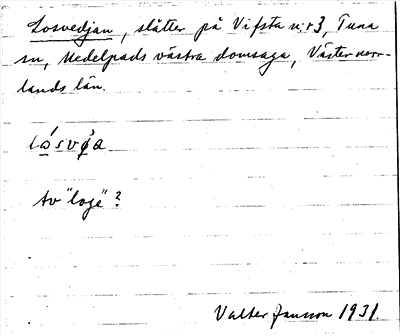 Losvedjan, slåtter på Vifsta n:r 3, Tuna
sn, Medelpads västra domsaga, Västernorr-
lands län.
Av "loge"?
Valter Jansson 1931.